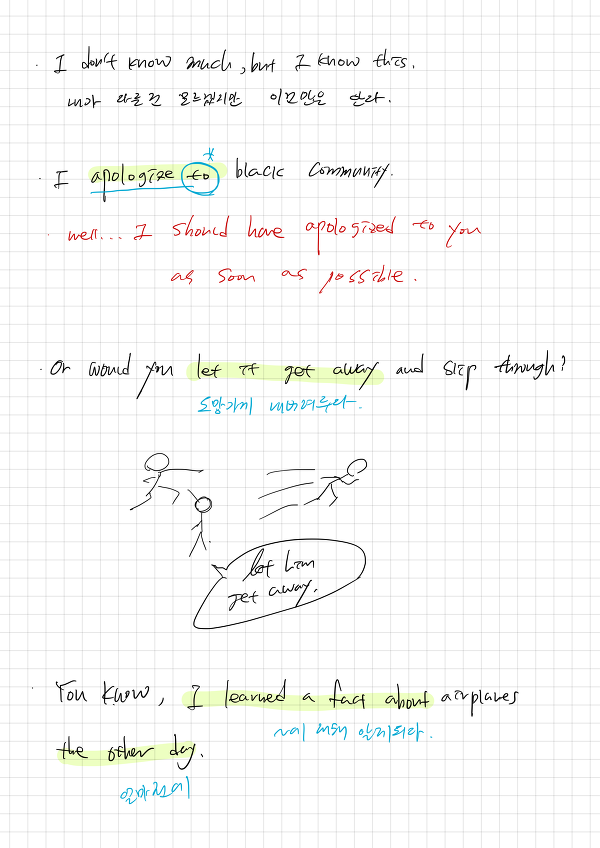 · I don't know much, but I know this.
내가 다른건 모르겠지만 이것만은 안다.
*
· I apologize to black community.
· well... I should have apologized to you
as soon as possible.
· Or would you let it get away and slip through?
도망가게 내버려두다.
let him
get away.
· You know, I learned a fact about airplanes
~에 대해 알게되다.
the other day.
얼마전에